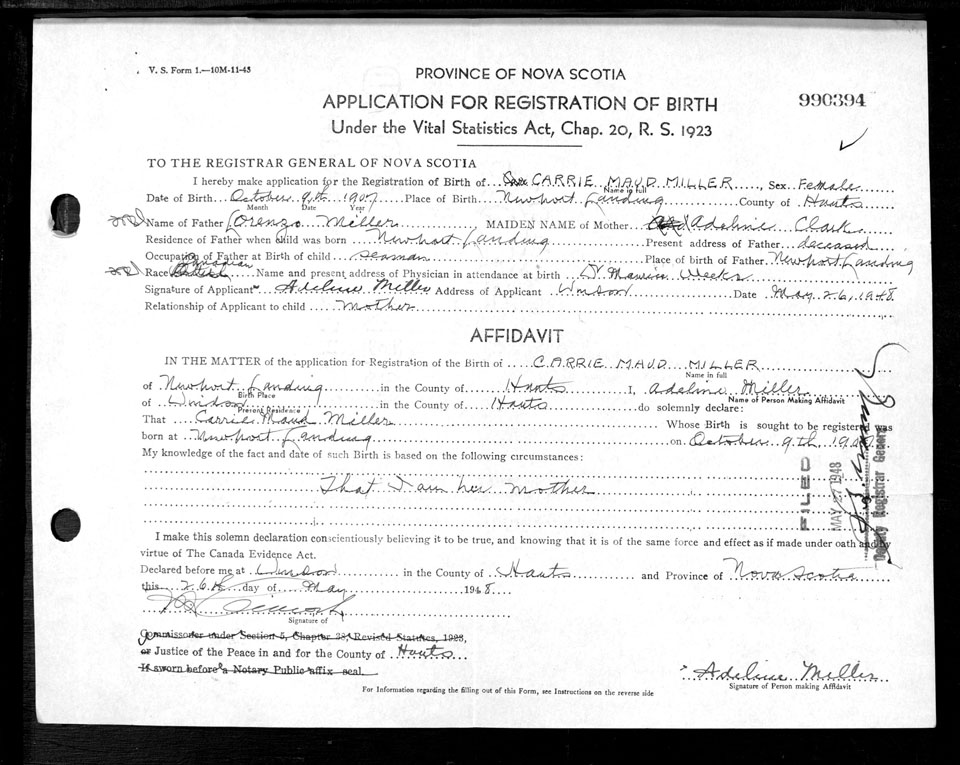 V. S. Form 1.—10M-11-43
PROVINCE OF NOVA SCOTIA
APPLICATION FOR REGISTRATION OF BIRTH
990394
Under the Vital Statistics Act, Chap. 20, R. S. 1923
TO THE REGISTRAR GENERAL OF NOVA SCOTIA
I hereby make application for the Registration of Birth of CARRIE MAUD MILLER, Sex Female
Name in full
Date of Birth October 9th 1907 Place of Birth Newport Landing County of Hants
Month Date Year
Name of Father Lorenzo Miller MAIDEN NAME of Mother Adeline Clark
Residence of Father when child was born Newport Landing Present address of Father deceased
Occupation of Father at Birth of child seaman Place of birth of Father Newport Landing
Canadian
Race British Name and present address of Physician in attendance at birth Dr Weeks
Signature of Applicant Adeline Miller Address of Applicant Windsor Date May 26, 1948
Relationship of Applicant to child Mother
AFFIDAVIT
IN THE MATTER of the application for Registration of the Birth of CARRIE MAUD MILLER
Name in full
of Newport Landing in the County of Hants I, Adeline Miller
Birth Place Name of Person Making Affidavit
of Windsor in the County of Hants do solemnly declare:
Present Residence
That Carrie Maud Miller Whose Birth is sought to be registered was
born at Newport Landing on October 9th 1907
My knowledge of the fact and date of such Birth is based on the following circumstances:
That I am her mother
FILED
MAY 27 1948
Deputy Registrar General
I make this solemn declaration conscientiously believing it to be true, and knowing that it is of the same force and effect as if made under oath and by
virtue of The Canada Evidence Act.
Declared before me at Windsor in the County of Hants and Province of Nova Scotia
this 26th day of May 1948
Signature of
Commissoner under Section 5, Chapter 38, Revised Statutes, 1923,
or Justice of the Peace in and for the County of Hants
If sworn before a Notary Public affix seal.
Adeline Miller
Signature of Person making Affidavit
For Information regarding the filling out of this Form, see Instructions on the reverse side